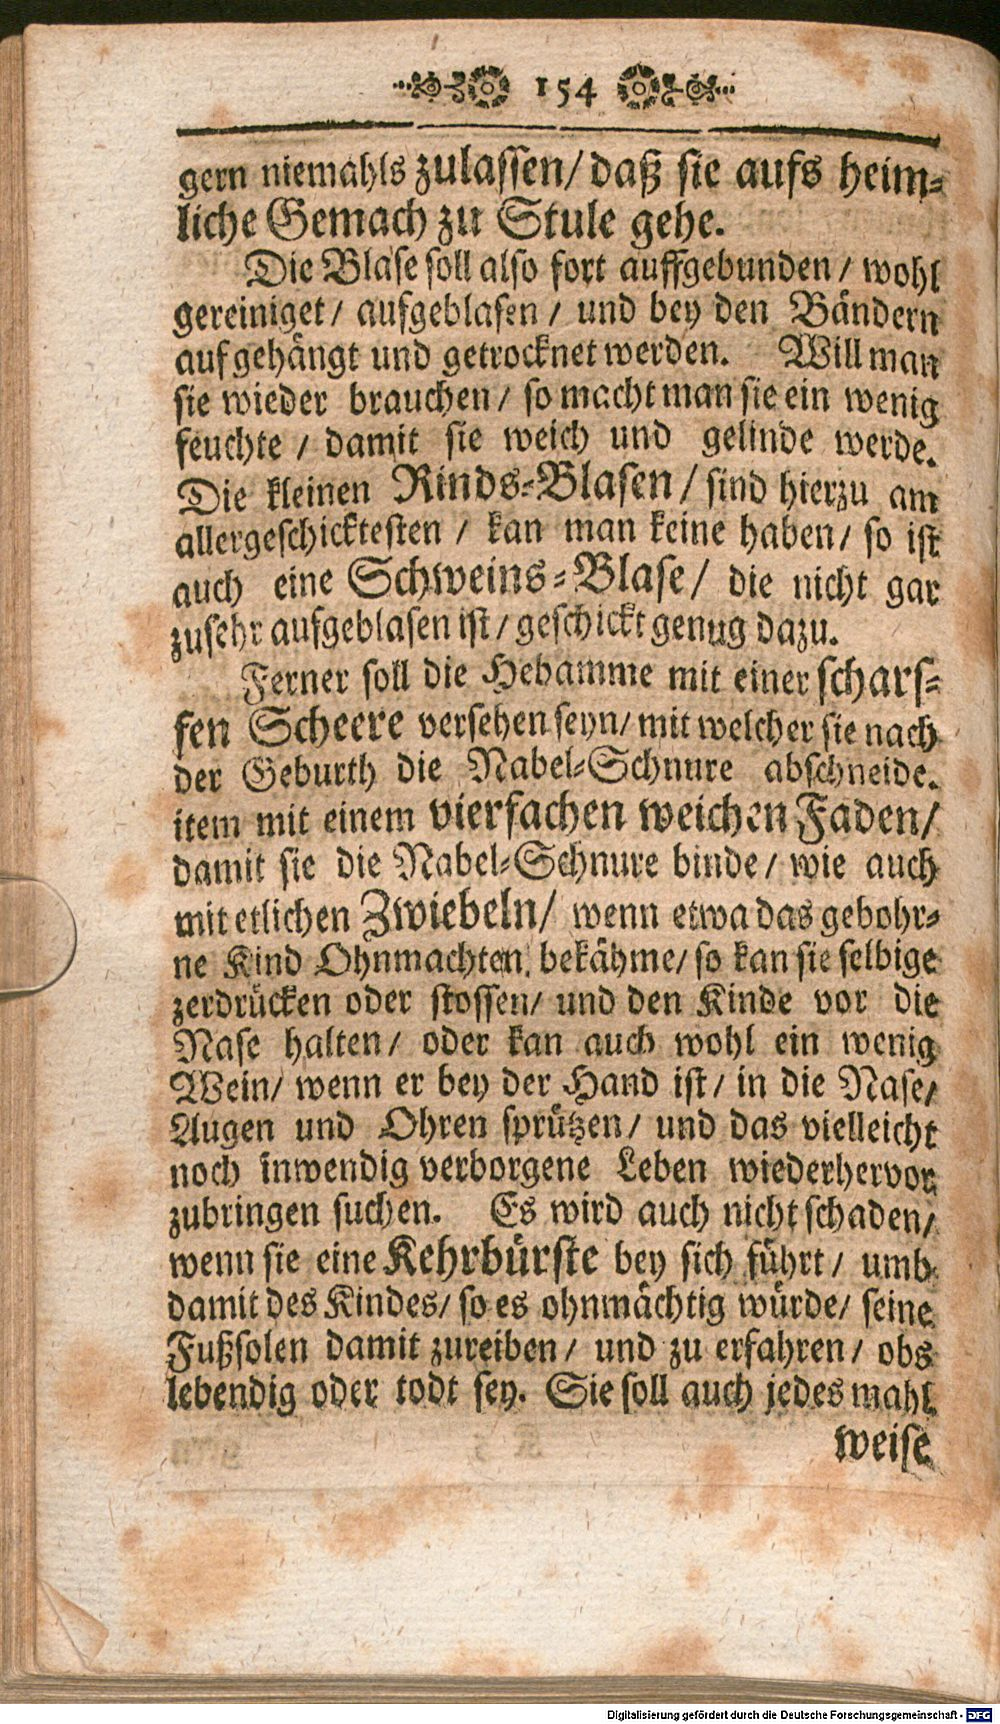 154
gern niemahls zulassen/ daß sie aufs heim-
liche Gemach zu Stule gehe.
Die Blase soll also fort auffgebunden/ wohl
gereiniget/ aufgeblasen/ und bey den Bändern
aufgehängt und getrocknet werden. Will man
sie wieder brauchen/ so macht man sie ein wenig
feuchte/ damit sie weich und gelinde werde.
Die kleinen Rinds-Blasen/ sind hierzu am
allergeschicktesten/ kan man keine haben/ so ist
auch eine Schweins-Blase/ die nicht gar
zusehr aufgeblasen ist/ geschickt genug dazu.
Ferner soll die Hebamme mit einer scharf-
fen Scheere versehen seyn/ mit welcher sie nach
der Geburth die Nabel-Schnure abschneide.
item mit einem vierfachen weichen Faden/
damit sie die Nabel-Schnure binde/ wie auch
mit etlichen Zwiebeln/ wenn etwa das gebohr-
ne Kind Ohnmachten bekähme/ so kan sie selbige
zerdrücken oder stossen/ und den Kinde vor die
Nase halten/ oder kan auch wohl ein wenig
Wein/ wenn er bey der Hand ist/ in die Nase/
Augen und Ohren sprützen/ und das vielleicht
noch inwendig verborgene Leben wiederhervor
zubringen suchen. Es wird auch nicht schaden/
wenn sie eine Kehrbürste bey sich führt/ umb
damit des Kindes/ so es ohnmächtig würde/ seine
Fußsolen damit zureiben/ und zu erfahren/ obs
lebendig oder todt sey. Sie soll auch jedes mahl
weise
Digitalisierung gefördert durch die Deutsche Forschungsgemeinschaft - DFG